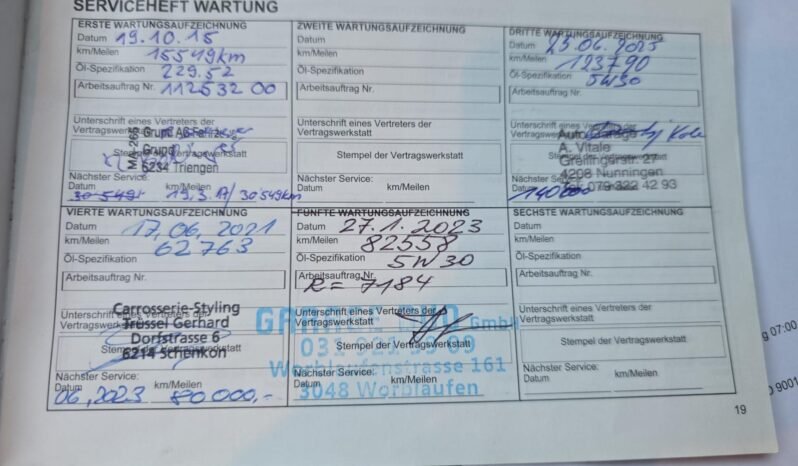 SERVICEHEFT WARTUNG
ERSTE WARTUNGSAUFZEICHNUNG
Datum 19.10.15
km/Meilen 15549km
Öl-Spezifikation 229.52
Arbeitsauftrag Nr. 11253200
Unterschrift eines Vertreters der
Vertragswerkstatt
MA-295 Grund AG Fahrzeuge
Grund
Stempel der Vertragswerkstatt
6234 Triengen
Nächster Service:
Datum km/Meilen
30549 19.3.17/30549km
ZWEITE WARTUNGSAUFZEICHNUNG
Datum
km/Meilen
Öl-Spezifikation
Arbeitsauftrag Nr.
Unterschrift eines Vertreters der
Vertragswerkstatt
Stempel der Vertragswerkstatt
Nächster Service:
Datum km/Meilen
DRITTE WARTUNGSAUFZEICHNUNG
Datum 25.06.2025
km/Meilen 123790
Öl-Spezifikation 5W30
Arbeitsauftrag Nr.
Unterschrift eines Vertreters der
Vertragswerkstatt
A. Vitale
Stempel der Vertragswerkstatt
Grellingerstr. 27
4208 Nunningen
Nächster Service:
079 322 42 93
Datum 140000
VIERTE WARTUNGSAUFZEICHNUNG
Datum 17.06.2021
km/Meilen 62763
Öl-Spezifikation
Arbeitsauftrag Nr.
Unterschrift eines Vertreters der
Vertragswerkstatt
Carrosserie-Styling
Trüssel Gerhard
Dorfstrasse 6
Stempel der Vertragswerkstatt
6214 Schenkon
Nächster Service:
Datum km/Meilen
06.2023 80000,-
FÜNFTE WARTUNGSAUFZEICHNUNG
Datum 27.1.2023
km/Meilen 82558
Öl-Spezifikation 5W30
Arbeitsauftrag Nr. R=7184
Unterschrift eines Vertreters der
Vertragswerkstatt
GmbH
Stempel der Vertragswerkstatt
Worblaufenstrasse 161
3048 Worblaufen
Nächster Service:
Datum km/Meilen
SECHSTE WARTUNGSAUFZEICHNUNG
Datum
km/Meilen
Öl-Spezifikation
Arbeitsauftrag Nr.
Unterschrift eines Vertreters der
Vertragswerkstatt
Stempel der Vertragswerkstatt
Nächster Service:
Datum km/Meilen
19
g 07:00
9001